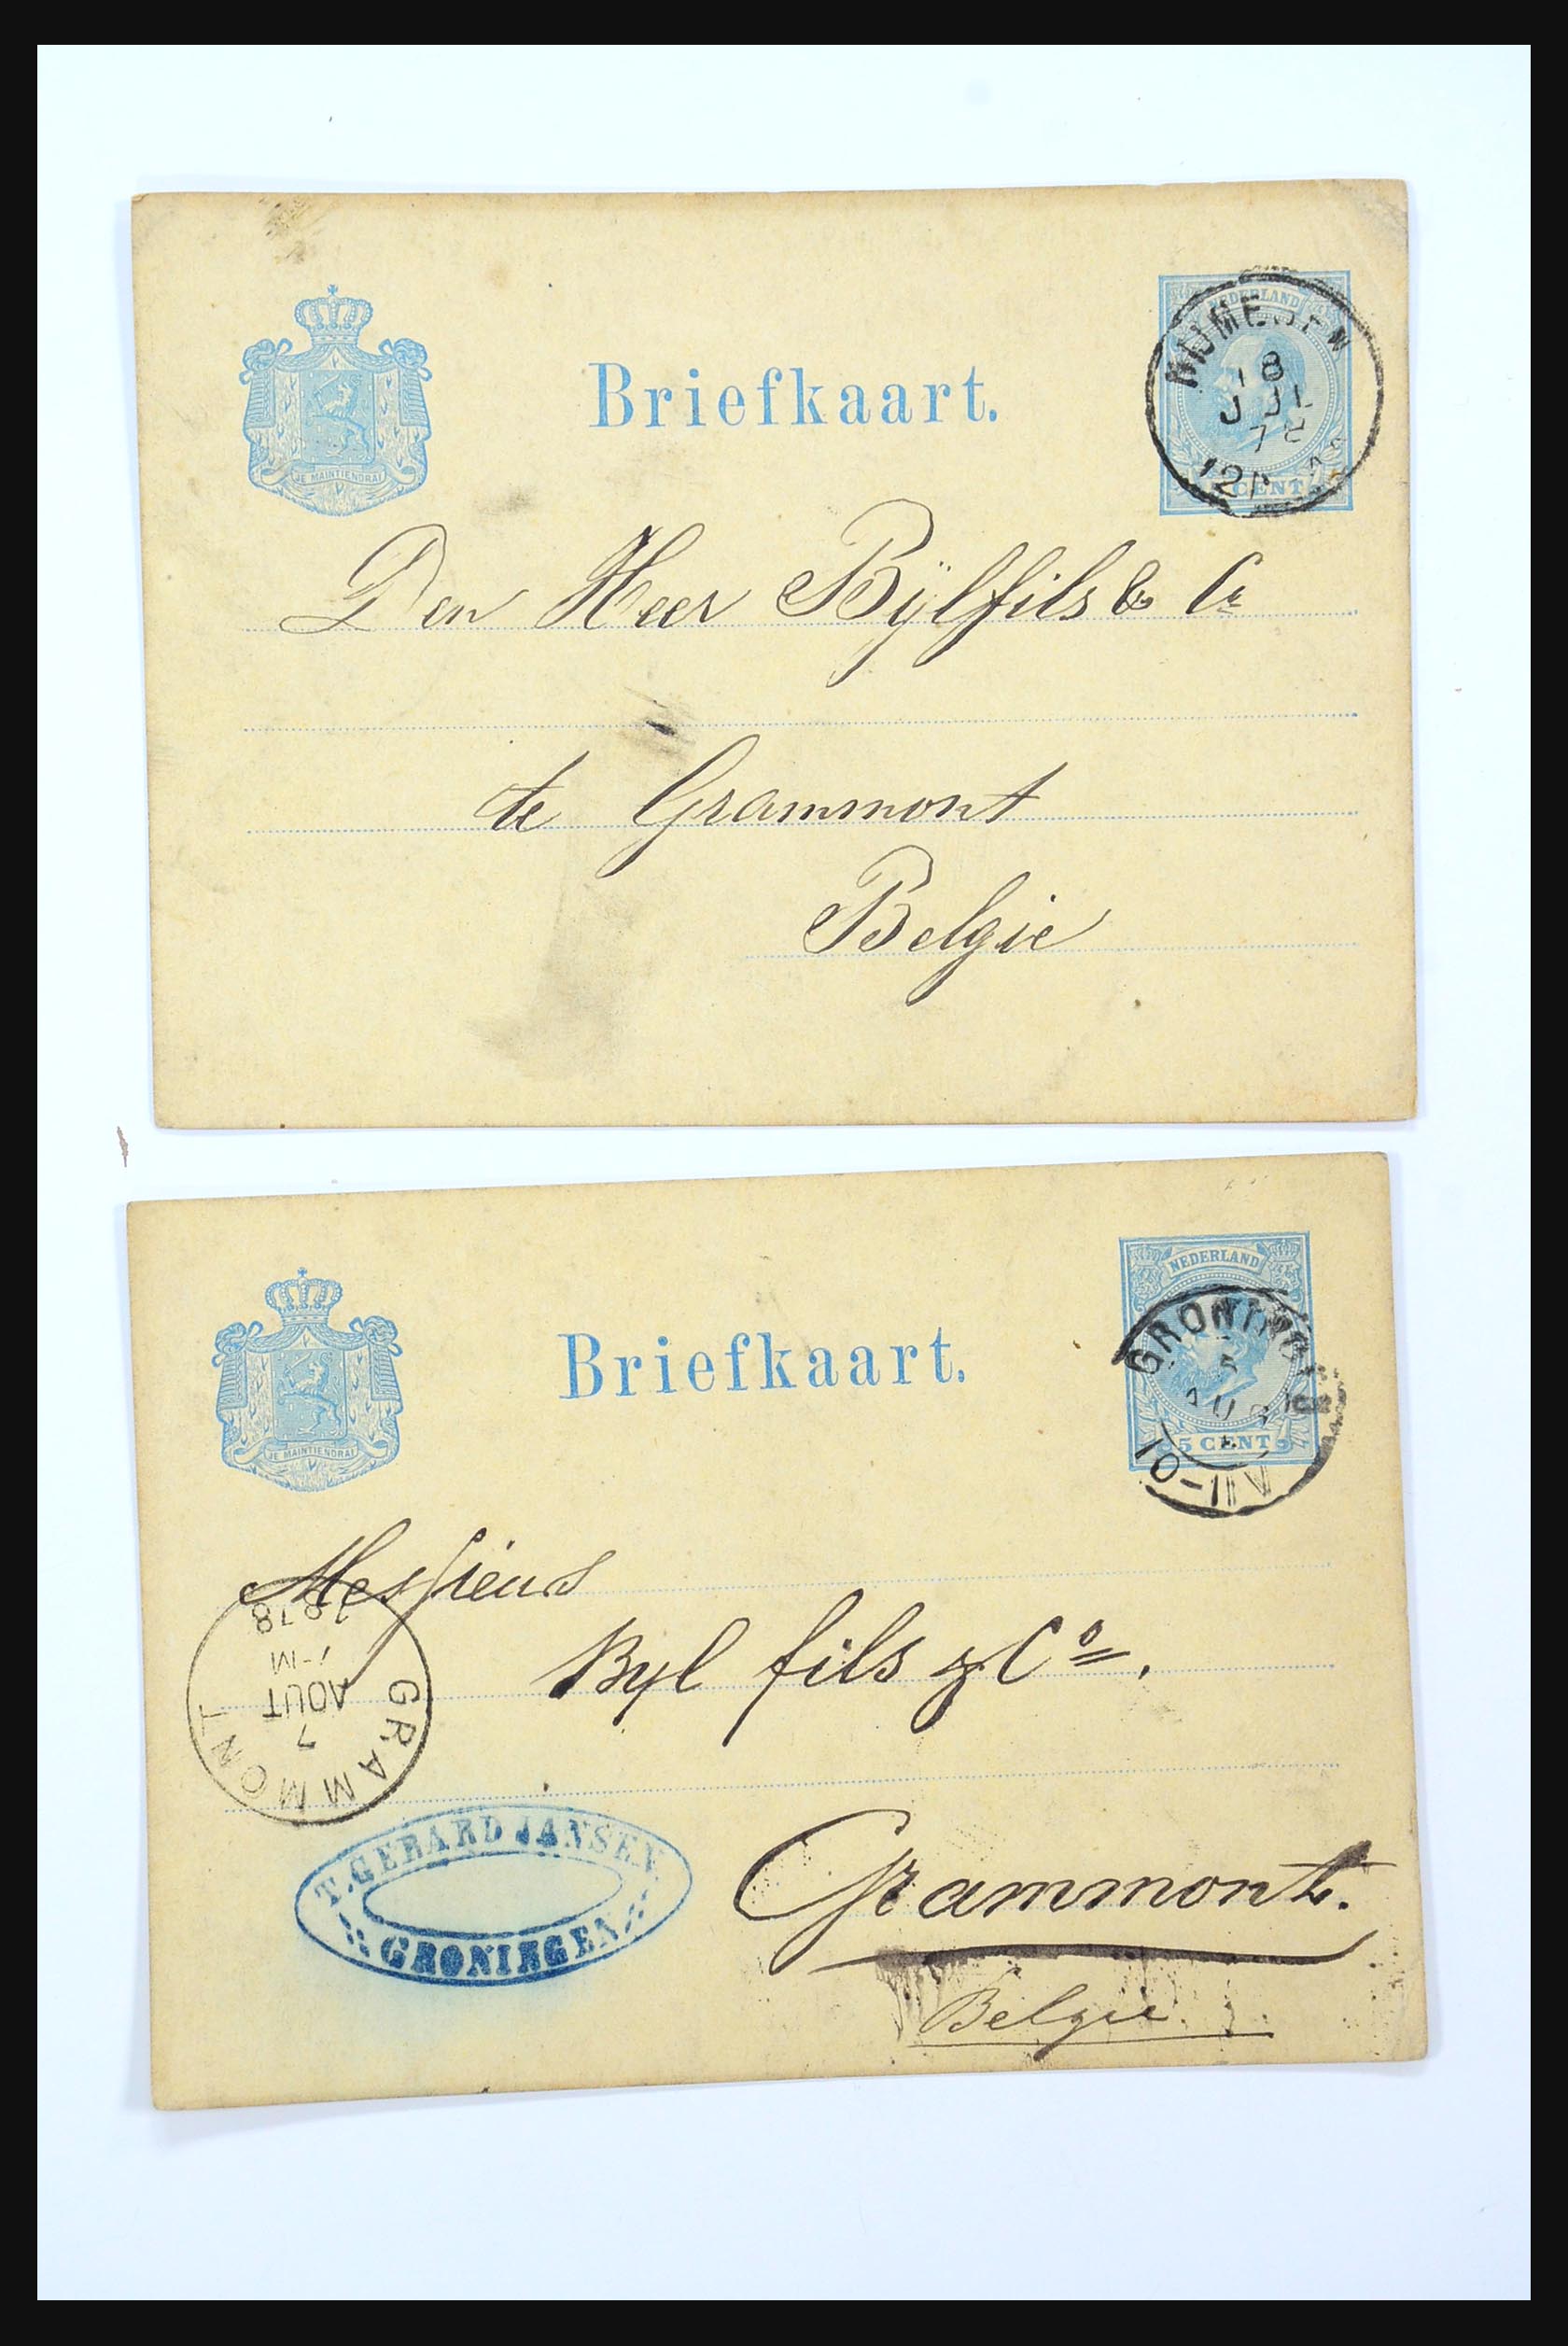 JE MAINTIENDRAI
Briefkaart.
NEDERLAND
18
JUL
12
CENT
Den Heer Bÿlfils & Co
te Grammont
Belgie
JE MAINTIENDRAI
Briefkaart.
NEDERLAND
GRONINGEN
5
AUG
10-11V
5 CENT 5
Messieurs
Byl fils & Co.
GRAMMONT
7
AOUT
7-M
1878
T. GERARD JANSEN
GRONINGEN
Grammont.
Belgie